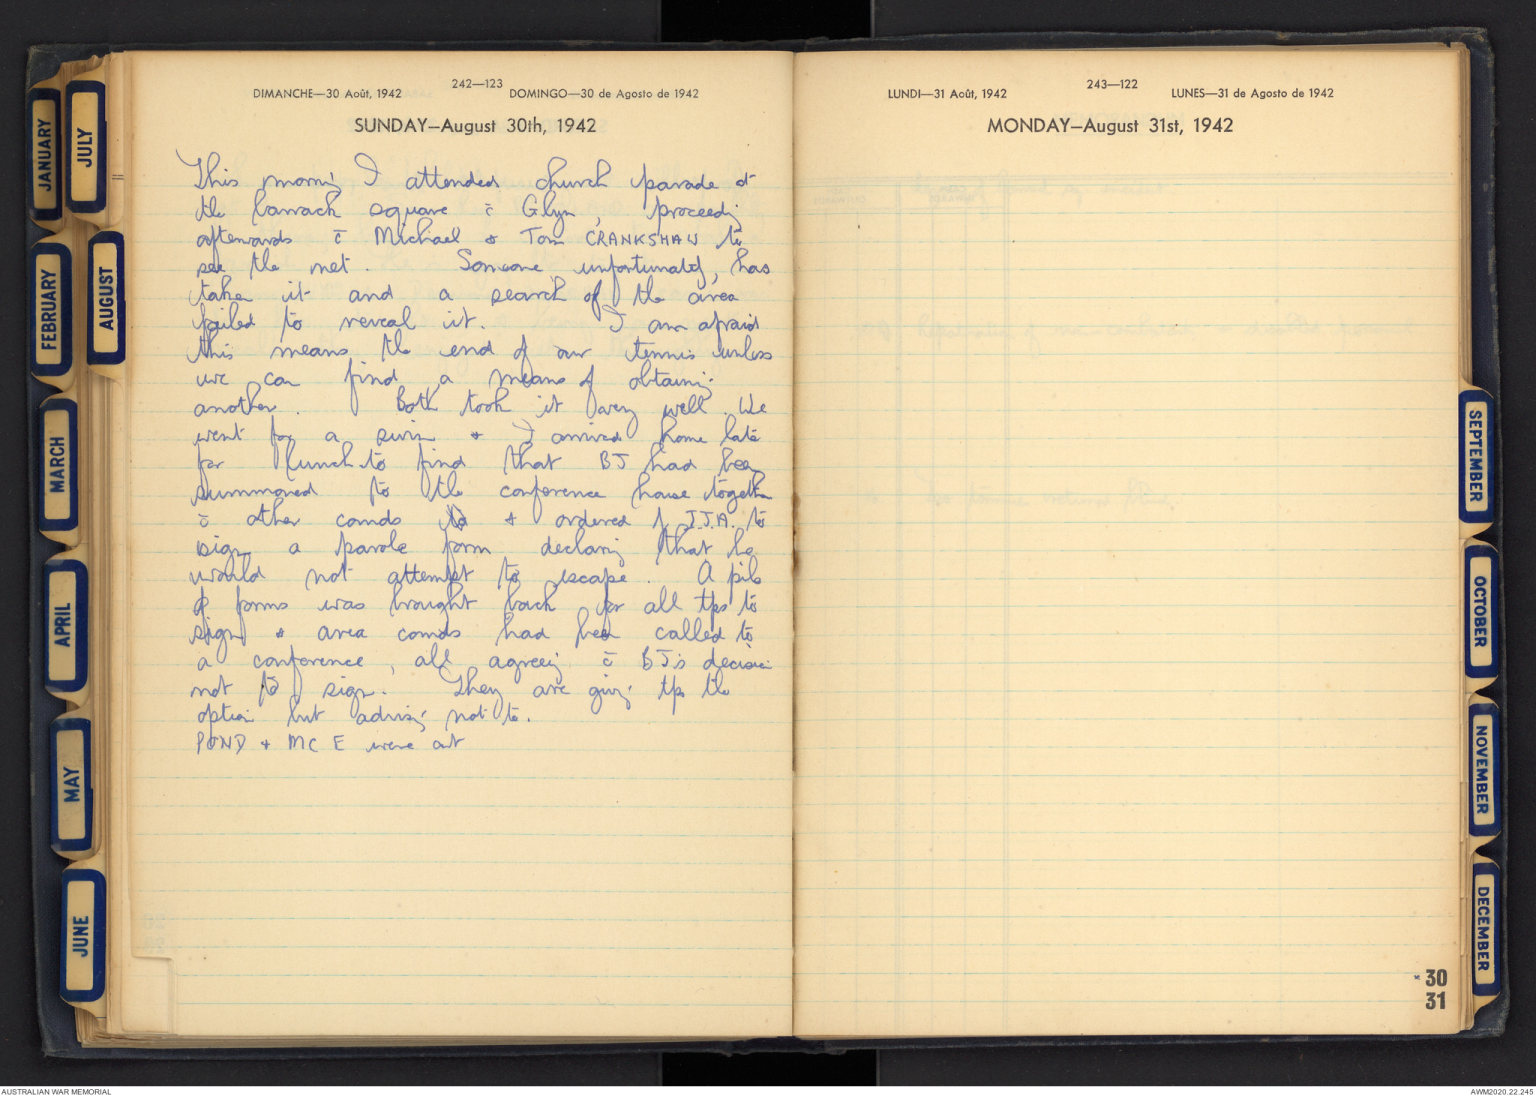 242—123
DIMANCHE—30 Août, 1942 DOMINGO—30 de Agosto de 1942
SUNDAY—August 30th, 1942
This morng I attended church parade at
the barrack square c̄ Glyn, proceedg
afterwards c̄ Michael & Tom CRANKSHAW to
see the net. Someone, unfortunately, has
taken it and a search of the area
failed to reveal it. I am afraid
this means the end of our tennis unless
we can find a means of obtaing
another. Both took it very well. We
went for a swim & I arrived home late
for lunch to find that BJ had been
summoned to the conference house together
c̄ other comds & ordered by I.J.A. to
sign a parole form declarg that he
would not attempt to escape. A pile
of forms was brought back for all tps to
sign & area comds had been called to
a conference, all agreeg c̄ BJ's decision
not to sign. They are givg tps the
option but advisg not to.
POND & MC E were out
JANUARY
FEBRUARY
MARCH
APRIL
MAY
JUNE
JULY
AUGUST
243—122
LUNDI—31 Août, 1942 LUNES—31 de Agosto de 1942
MONDAY—August 31st, 1942
SEPTEMBER
OCTOBER
NOVEMBER
DECEMBER
30
31
AUSTRALIAN WAR MEMORIAL
AWM2020.22.245